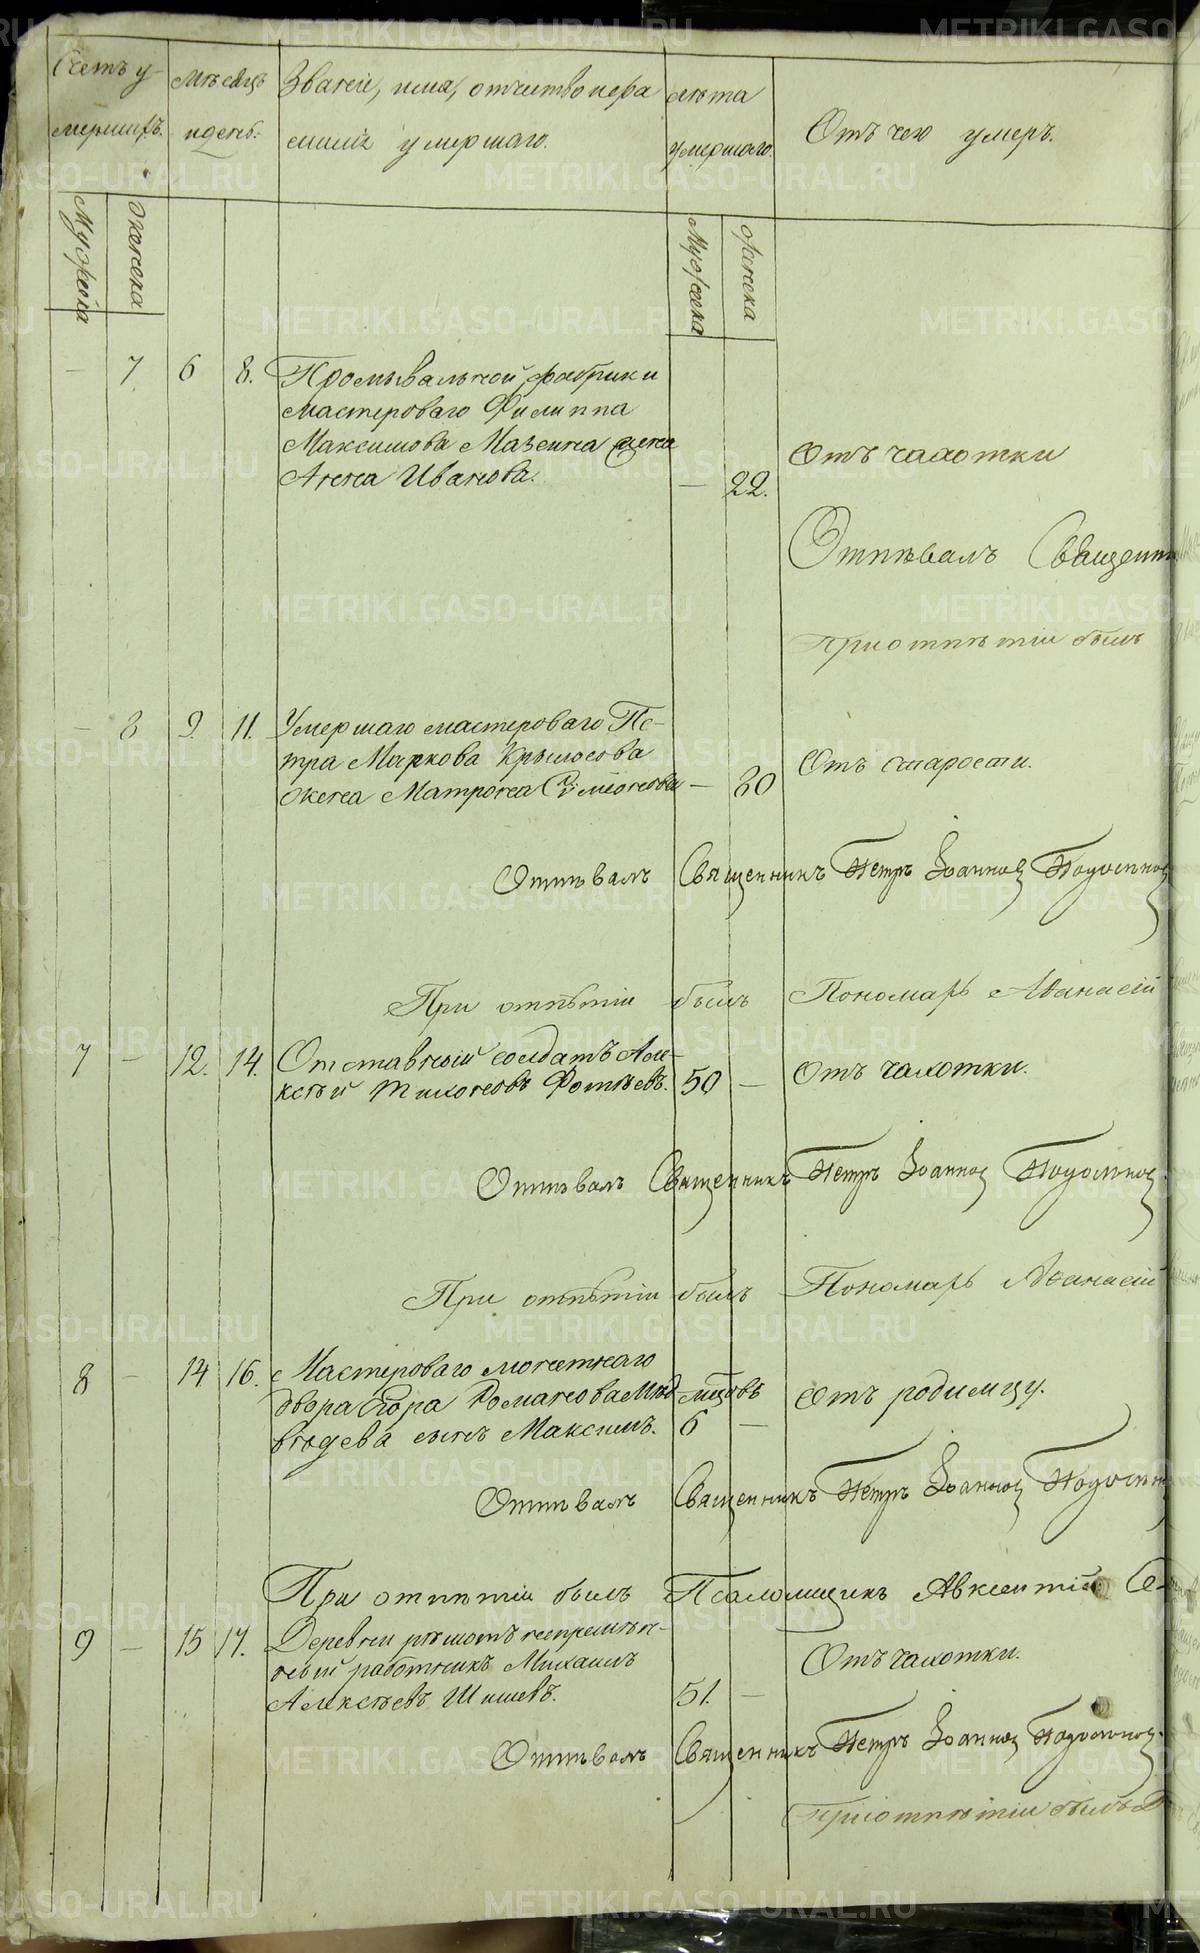 Счетъ у-
мершихъ.
Мужеска
Женска
Мѣсяцъ
и день.
Званіе, имя, отчество и фа
милія умершаго.
Лѣта
умершаго.
Мужеска
Женска
Отъ чего умеръ.
— 7 6 8. Промывальной фабрики
мастероваго Филиппа
Максимова Мазеина жена
Анна Иванова. — 22.
Отъ чахотки
Отпѣвалъ Священни
При отпѣтіи былъ
— 8 9. 11. Умершаго мастероваго Пе-
тра Маркова Крылосова
жена Матрона Симіонова — 80
Отъ старости.
Отпѣвалъ Священникъ Петръ Іоанновъ
При отпѣтіи былъ Пономарь Аѳанасій
7 — 12. 14. Отставный солдатъ Але-
ксѣй Тихоновъ Фотѣевъ. 50 —
Отъ чахотки.
Отпѣвалъ Священникъ Петръ Іоанновъ
При отпѣтіи былъ Пономарь Аѳанасій
8 — 14 16. Мастероваго монетнаго
двора Егора Романова Мѣд-
вѣдева сынъ Максимъ. мцовъ
6 —
Отъ родимцу.
Отпѣвалъ Священникъ Петръ Іоанновъ
При отпѣтіи былъ Псаломщикъ Авксентій
9 — 15 17. Деревни рѣшотъ непремѣн-
ный работникъ Михаилъ
Алексѣевъ Шишевъ. 51. —
Отъ чахотки.
Отпѣвалъ Священникъ Петръ Іоанновъ
При отпѣтіи былъ
METRIKI.GASO-URAL.RU